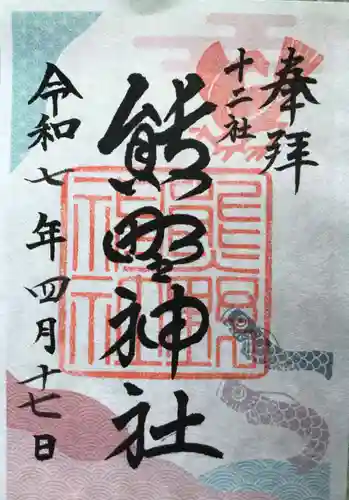 奉拝
十二社
熊野神社
令和七年四月十七日
熊野神社